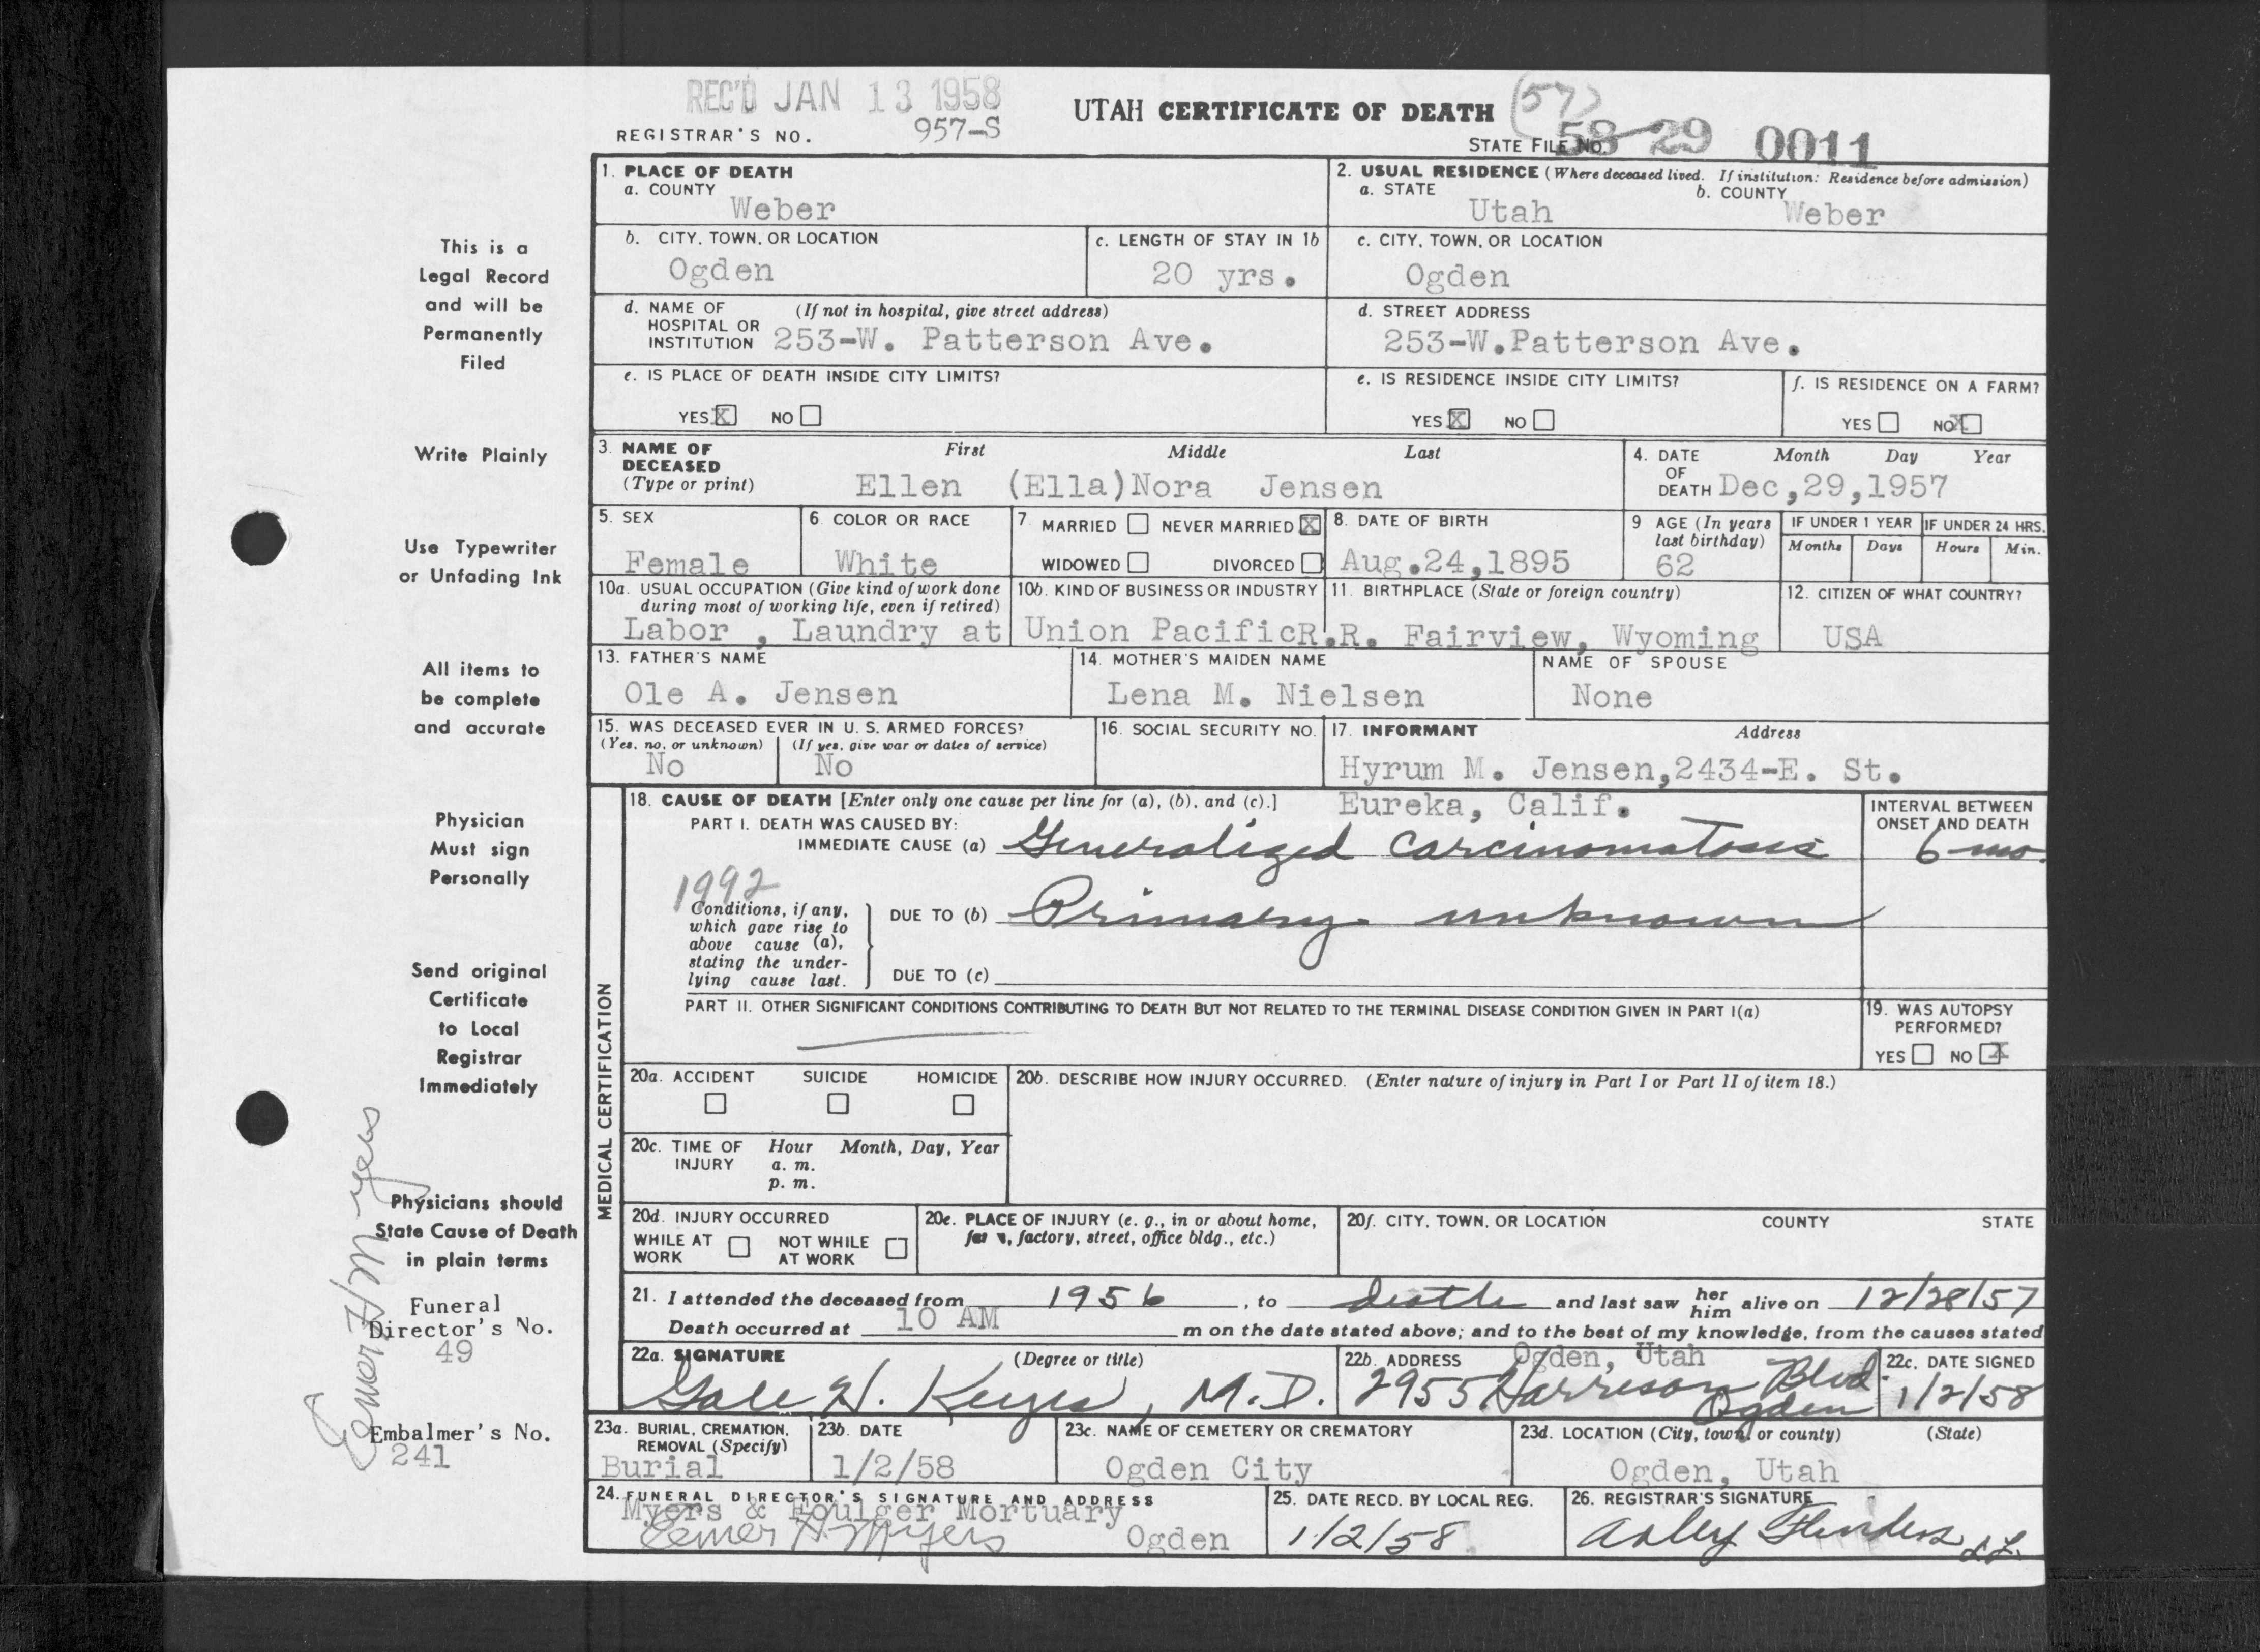 REC'D JAN 13 1958
UTAH CERTIFICATE OF DEATH (57)
REGISTRAR'S NO. 957-S
STATE FILE NO. 58-29 0011
1. PLACE OF DEATH
a. COUNTY
Weber
2. USUAL RESIDENCE (Where deceased lived. If institution: Residence before admission)
a. STATE b. COUNTY
Utah Weber
b. CITY, TOWN, OR LOCATION
Ogden
c. LENGTH OF STAY IN 1b
20 yrs.
c. CITY, TOWN, OR LOCATION
Ogden
d. NAME OF HOSPITAL OR INSTITUTION (If not in hospital, give street address)
253-W. Patterson Ave.
d. STREET ADDRESS
253-W.Patterson Ave.
e. IS PLACE OF DEATH INSIDE CITY LIMITS?
YES X NO
e. IS RESIDENCE INSIDE CITY LIMITS?
YES X NO
f. IS RESIDENCE ON A FARM?
YES NO X
3. NAME OF DECEASED (Type or print)
First Middle Last
Ellen (Ella)Nora Jensen
4. DATE OF DEATH Month Day Year
Dec,29,1957
5. SEX
Female
6. COLOR OR RACE
White
7 MARRIED NEVER MARRIED X
WIDOWED DIVORCED
8. DATE OF BIRTH
Aug.24,1895
9 AGE (In years last birthday)
62
IF UNDER 1 YEAR IF UNDER 24 HRS.
Months Days Hours Min.
10a. USUAL OCCUPATION (Give kind of work done during most of working life, even if retired)
Labor , Laundry at
10b. KIND OF BUSINESS OR INDUSTRY
Union PacificR.R.
11. BIRTHPLACE (State or foreign country)
Fairview, Wyoming
12. CITIZEN OF WHAT COUNTRY?
USA
13. FATHER'S NAME
Ole A. Jensen
14. MOTHER'S MAIDEN NAME
Lena M. Nielsen
NAME OF SPOUSE
None
15. WAS DECEASED EVER IN U. S. ARMED FORCES?
(Yes, no, or unknown) (If yes, give war or dates of service)
No No
16. SOCIAL SECURITY NO.
17. INFORMANT Address
Hyrum M. Jensen,2434-E. St.
Eureka, Calif.
MEDICAL CERTIFICATION
18. CAUSE OF DEATH [Enter only one cause per line for (a), (b), and (c).]
PART I. DEATH WAS CAUSED BY:
IMMEDIATE CAUSE (a) Generalized Carcinomatosis
INTERVAL BETWEEN ONSET AND DEATH
6 mo.
1992
Conditions, if any, which gave rise to above cause (a), stating the underlying cause last.
DUE TO (b) Primary unknown
DUE TO (c)
PART II. OTHER SIGNIFICANT CONDITIONS CONTRIBUTING TO DEATH BUT NOT RELATED TO THE TERMINAL DISEASE CONDITION GIVEN IN PART I(a)
19. WAS AUTOPSY PERFORMED?
YES NO X
20a. ACCIDENT SUICIDE HOMICIDE
20b. DESCRIBE HOW INJURY OCCURRED. (Enter nature of injury in Part I or Part II of item 18.)
20c. TIME OF INJURY Hour Month, Day, Year
a. m.
p. m.
20d. INJURY OCCURRED
WHILE AT WORK NOT WHILE AT WORK
20e. PLACE OF INJURY (e. g., in or about home, farm, factory, street, office bldg., etc.)
20f. CITY, TOWN, OR LOCATION COUNTY STATE
21. I attended the deceased from 1956, to death and last saw her him alive on 12/28/57
Death occurred at 10 AM m on the date stated above; and to the best of my knowledge, from the causes stated
22a. SIGNATURE (Degree or title)
Gale H. Keyes, M.D.
22b. ADDRESS Ogden, Utah
2955 Harrison Blvd. Ogden
22c. DATE SIGNED
1/2/58
23a. BURIAL, CREMATION, REMOVAL (Specify)
Burial
23b. DATE
1/2/58
23c. NAME OF CEMETERY OR CREMATORY
Ogden City
23d. LOCATION (City, town, or county) (State)
Ogden, Utah
24. FUNERAL DIRECTOR'S SIGNATURE AND ADDRESS
Myers & Foulger Mortuary
Elmer H Myers Ogden
25. DATE RECD. BY LOCAL REG.
1/2/58
26. REGISTRAR'S SIGNATURE
This is a
Legal Record
and will be
Permanently
Filed
Write Plainly
Use Typewriter
or Unfading Ink
All items to
be complete
and accurate
Physician
Must sign
Personally
Send original
Certificate
to Local
Registrar
Immediately
Physicians should
State Cause of Death
in plain terms
Funeral
Director's No.
49
Embalmer's No.
241
Elmer H Myers